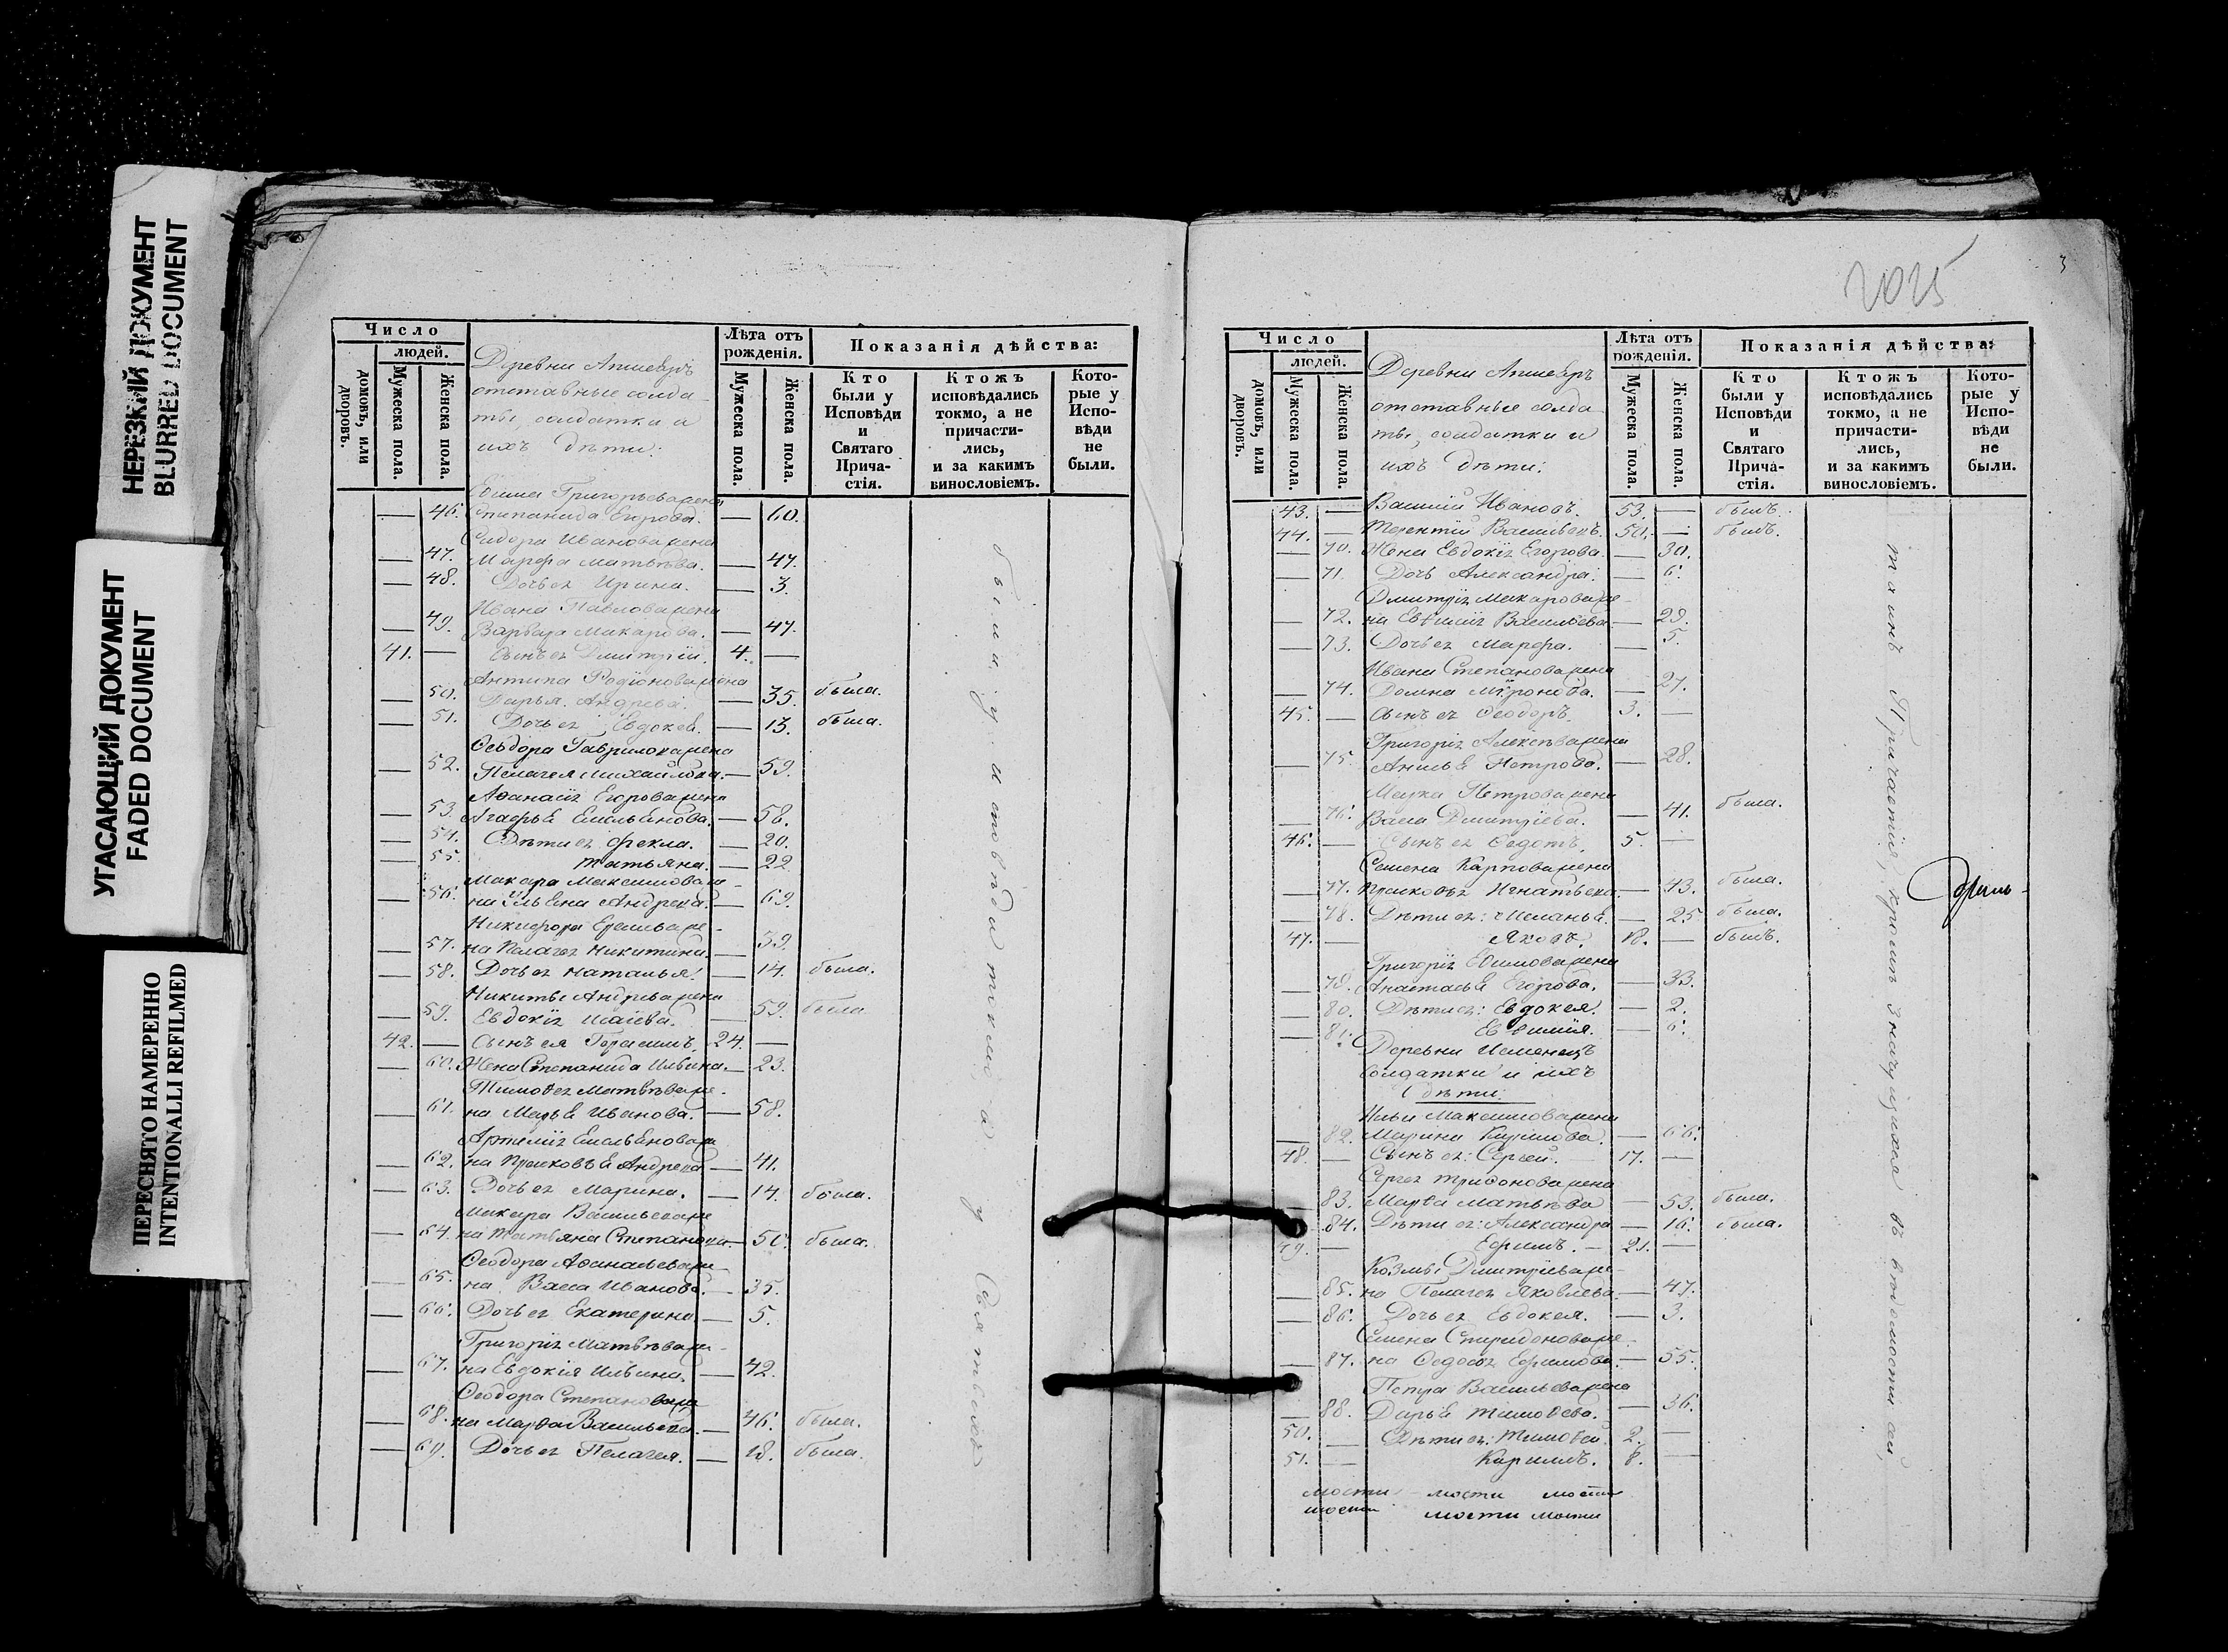 НЕРЕЗКИЙ ДОКУМЕНТ
BLURRED DOCUMENT
УГАСАЮЩИЙ ДОКУМЕНТ
FADED DOCUMENT
ПЕРЕСНЯТО НАМЕРЕННО
INTENTIONALLI REFILMED
Число
людей.
домовъ, или дворовъ.
Мужеска пола.
Женска пола.
Деревни Апшевръ
отставные солда-
ты, солдатки и
ихъ дѣти:
Лѣта отъ рожденія.
Мужеска пола.
Женска пола.
Показанія дѣйства:
Кто были у Исповѣди и Святаго Прича-стія.
Ктожъ исповѣдались токмо, а не причасти-лись, и за какимъ винословіемъ.
Кото-рые у Испо-вѣди не были.
Григорьева жена
— 46. Степанида Егорова. — 60.
Сидора Иванова жена
— 47. Марфа Матвѣева. — 47.
— 48. Дочь ея Ирина. — 3.
Ивана Павлова жена
— 49. Варвара Макарова. — 47.
41. — Сынъ ея Дмитрій. 4. —
Антипа Родіонова жена
— 50. Дарья Андреева. — 35. была.
— 51. Дочь ея Евдокея. — 13. была.
Ѳеодора Гаврилова жена
— 52. Пелагея Михайлова. — 59.
Аѳанасія Егорова жена
— 53. Агафья Емельянова. — 58.
— 54. Дѣти ея Фекла. — 20.
— 55. Татьяна. — 22
Макара Максимова же-
— 56. на Ульяна Андреева. — 69.
Никифора же-
— 57. на Палагея Никитина. — 39.
— 58. Дочь ея Наталья. — 14. была.
Никиты Андреева жена
— 59. Евдокія Исаіева. — 59. была.
42. — Сынъ ея Герасимъ. 24. —
— 60. Жена Степанида Ильина. — 23.
Тимоѳея Матвѣева же-
— 61. на Марья Иванова. — 58.
Артемія Емельянова же
— 62. на Прасковья Андреева — 41.
— 63. Дочь ея Марина. — 14. была.
Макара Васильева же
— 64. на Татьяна Степанова. — 50. была.
Ѳеодора Аѳанасьева же-
— 65. на Васса Иванова. — 35.
— 66. Дочь ея Екатерина — 5.
Григорія Матвѣева же-
— 67. на Евдокія Ильина. — 42.
Ѳеодора Степанова же
— 68. на Марѳа Васильева. — 46. была.
— 69. Дочь ея Пелагея. — 18. была.
были у исповѣди токмо а у Святаго
2025
3
Число
людей.
домовъ, или дворовъ.
Мужеска пола.
Женска пола.
Деревни Апшевръ
отставные солда-
ты, солдатки и
ихъ дѣти:
Лѣта отъ рожденія.
Мужеска пола.
Женска пола.
Показанія дѣйства:
Кто были у Исповѣди и Святаго Прича-стія.
Ктожъ исповѣдались токмо, а не причасти-лись, и за какимъ винословіемъ.
Кото-рые у Испо-вѣди не были.
43. — Василій Ивановъ. 53. — былъ.
44. — Терентій Васильевъ. 50. — былъ.
— 70. Жена Евдокія Егорова. — 30.
— 71. Дочь Александра. — 6.
Дмитрія Макарова же-
— 72. на Евѳимія Васильева. — 29.
— 73. Дочь ея Марфа. — 5.
Ивана Степанова жена
— 74. Домна Миронова. — 27.
45. — Сынъ ея Ѳеодоръ. 3. —
Григорія Алексѣева жена
— 75. Анисья Петрова. — 28.
Марка Петрова жена
— 76. Васса Дмитріева. — 41. была.
46. — Сынъ ея Ѳедотъ. 5. —
Семена Карпова жена
— 77. Прасковья Игнатьева — 43. была.
— 78. Дѣти ея: Меланья. — 25 была.
47. — Яковъ. 18. — былъ.
Григорія Еѳимова жена
— 79. Анастасья Егорова. — 33.
— 80. Дѣти ея: Евдокея. — 2.
— 81. Евѳимія. — 6.
Деревни
солдатки и ихъ
дѣти:
Ильи Максимова жена
— 82. Марина Кирилова. — 66.
48. — Сынъ ея: Сергей. 17. —
Сергея Трифонова жена
— 83. Марѳа Матвѣева — 53. была.
— 84. Дѣти ея: Александра — 16. была.
49. — Ефимъ. 21. —
Козмы Дмитріева же-
— 85. на Пелагея Яковлева. — 47.
— 86. Дочь ея Евдокея. — 3.
Семена Спиридонова же-
— 87. на Ѳедосья Ефимова. — 55.
Петра Васильева жена
— 88. Дарья Тимоѳеева. — 36.
50. — Дѣти ея: Тимоѳей. 2. —
51. — Кирилъ. 8. —
мости мости мости
мости мости мости
таинъ Причастія, кромѣ значущихся въ вѣдомости сей,